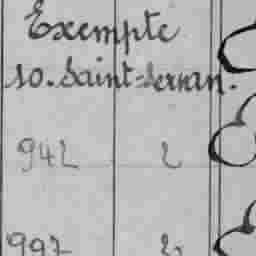 Exempte
10. Saint=Servan.
942 2
997 2